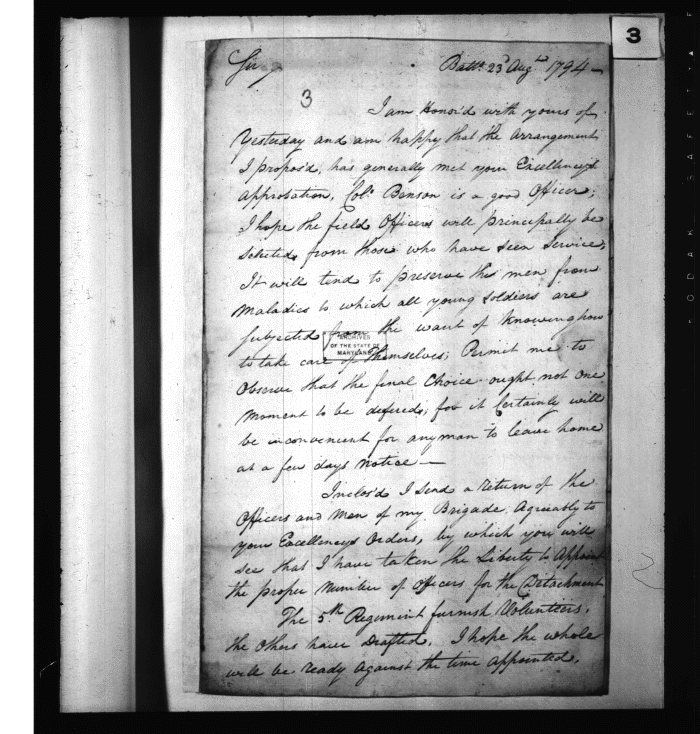 3
Sir,
Balt. 23d Augt 1794 —
3
I am Honor'd with yours of
Yesterday and am happy that the Arrangement
I propos'd, has generally met your Excellency's
approbation. Col. Benson is a good Officer;
I hope the field Officers will principally be
Selected from those who have seen Service,
It will tend to preserve the men from
Maladies to which all young Soldiers are
Subjected from the want of Knowing how
to take care of Themselves; Permit me to
Observe that the final Choice ought not one
Moment to be defered; for it Certainly will
be inconvenient for any man to leave home
at a few days notice —
ARCHIVES
OF THE STATE OF
MARYLAND
Inclos'd I send a return of the
Officers and Men of my Brigade, Agreeably to
your Excellencys Orders, by which you will
see that I have taken the Liberty to Appoint
the proper Number of Officers for the Detachment
The 5th Regiment furnish Volunteers,
the Others have Drafted. I hope the whole
will be ready Against the time appointed.
KODAK SAFETY